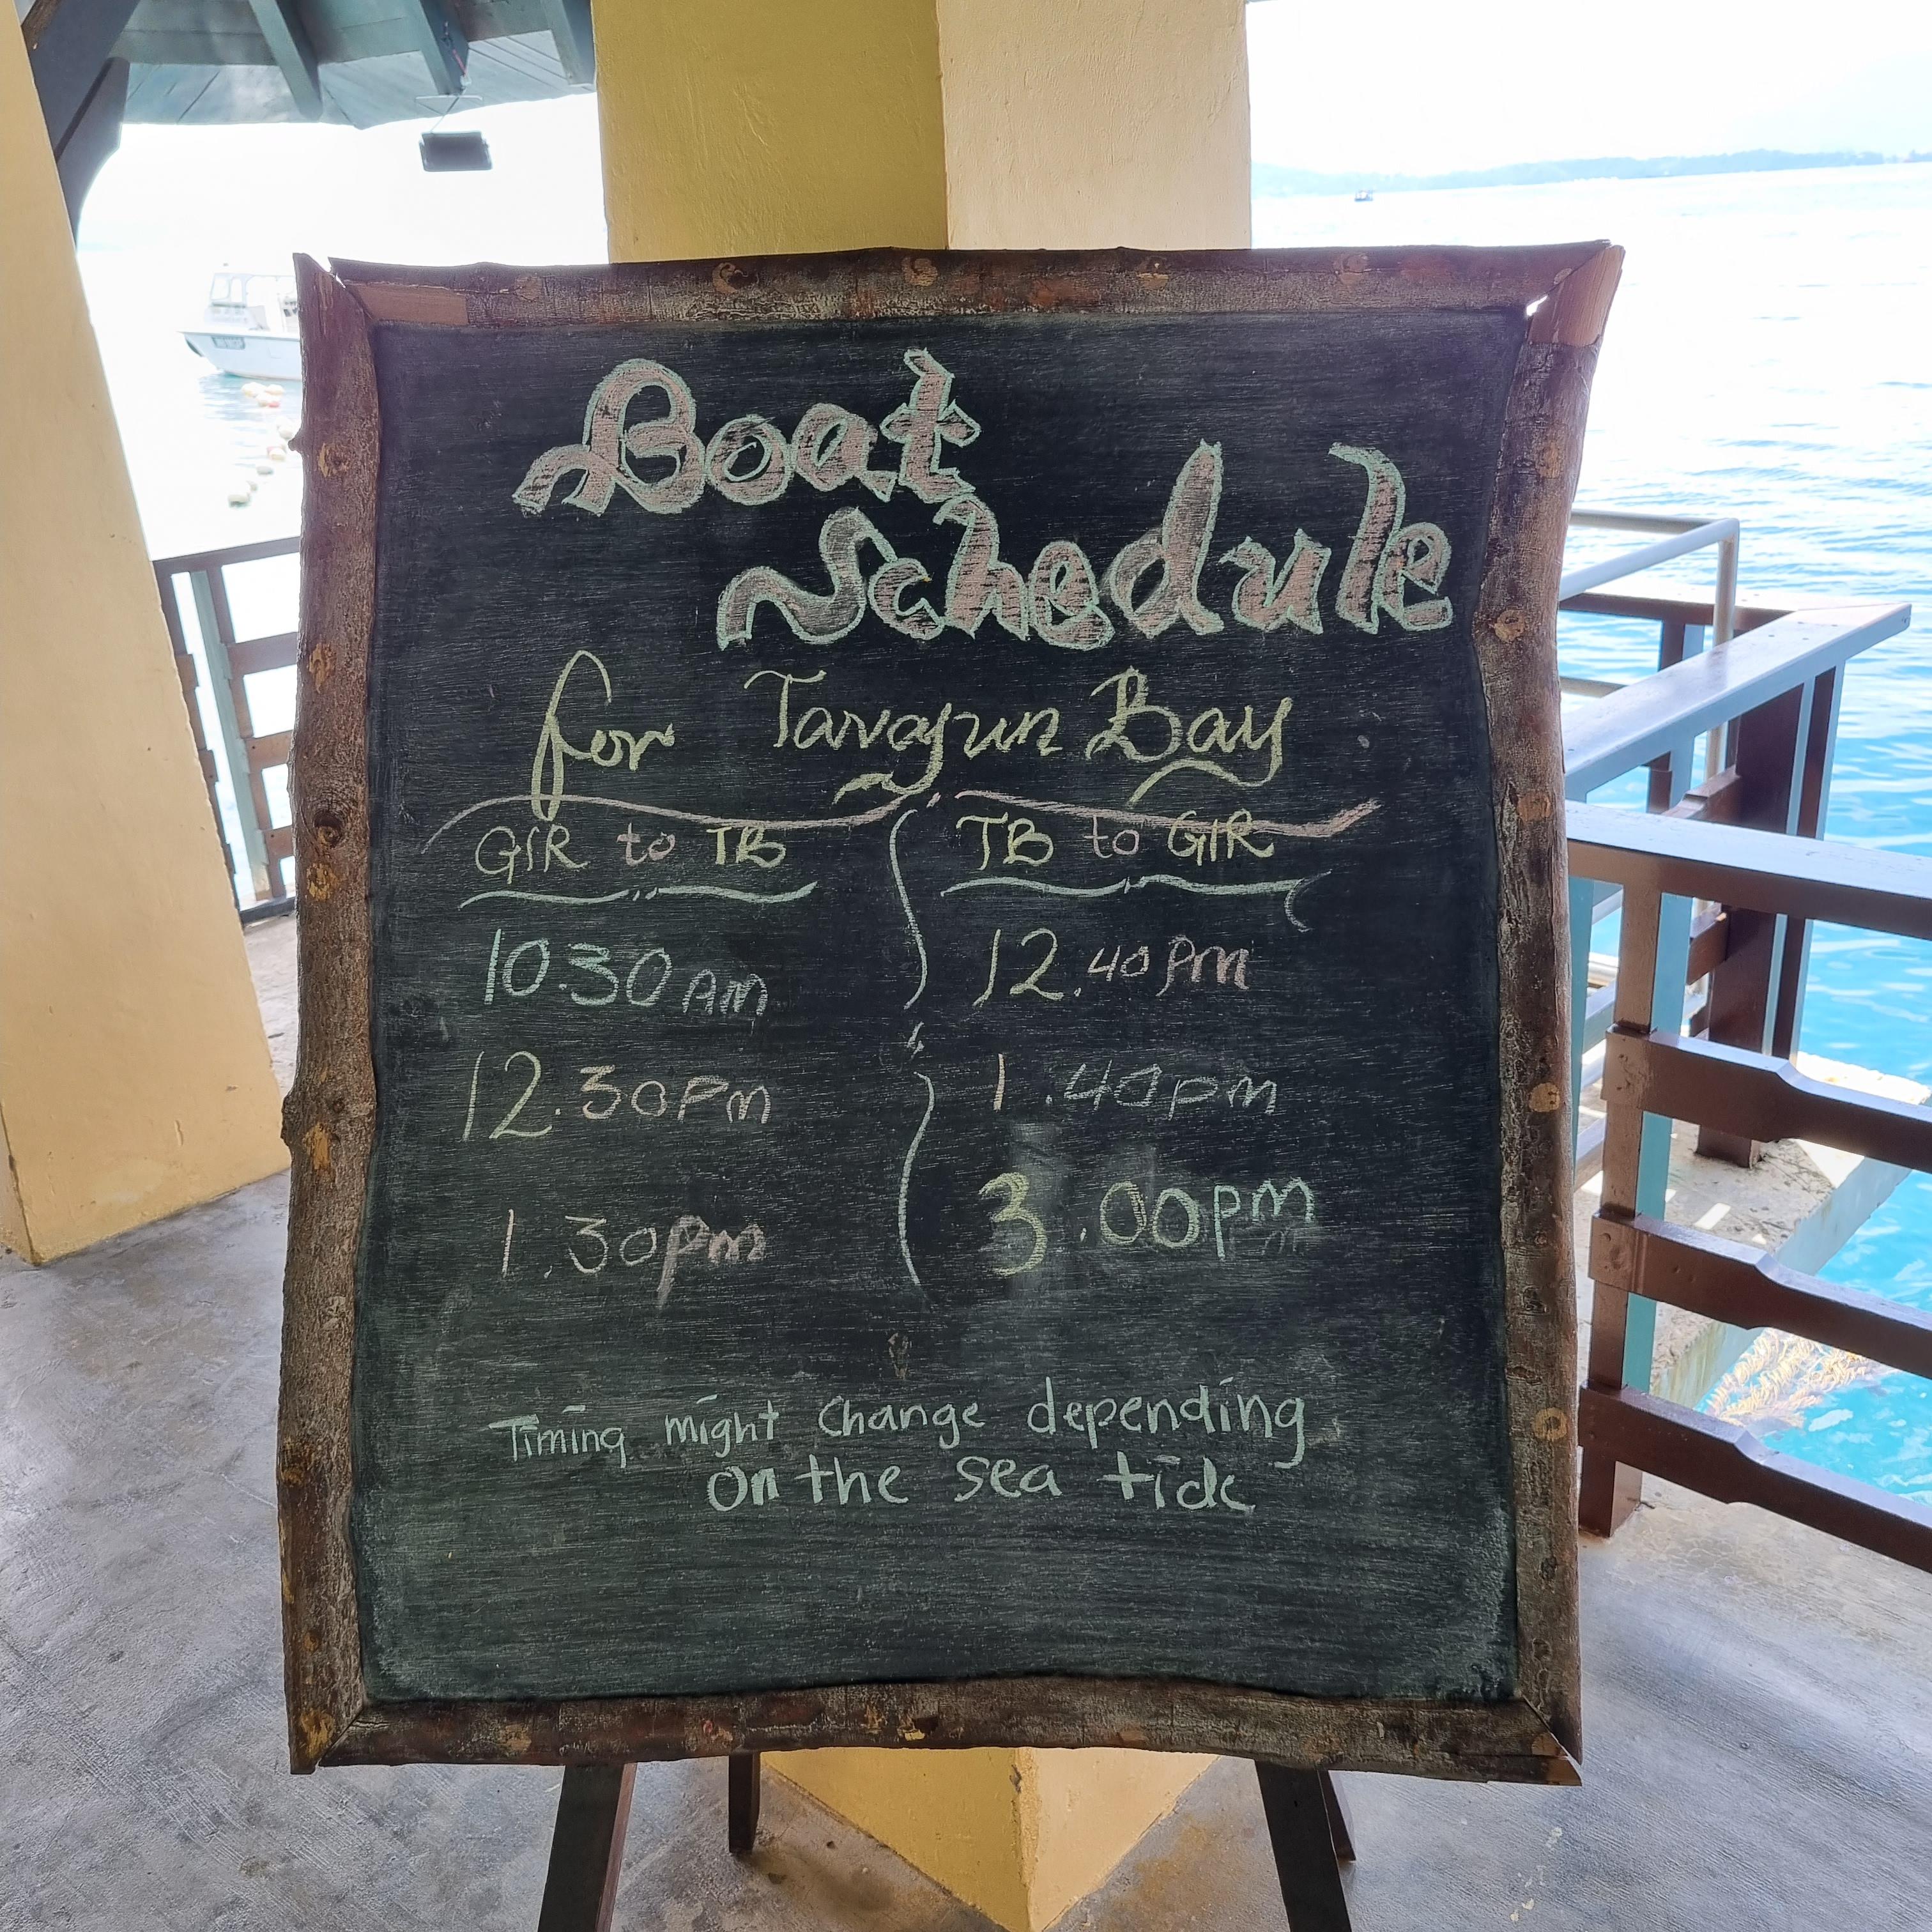 Boat
Schedule
for Tavajun Bay
GIR to TB
TB to GIR
10.30 AM
12.40 PM
12.30 PM
1.40 pm
1.30 pm
3.00 pm
Timing might Change depending
on the sea tide